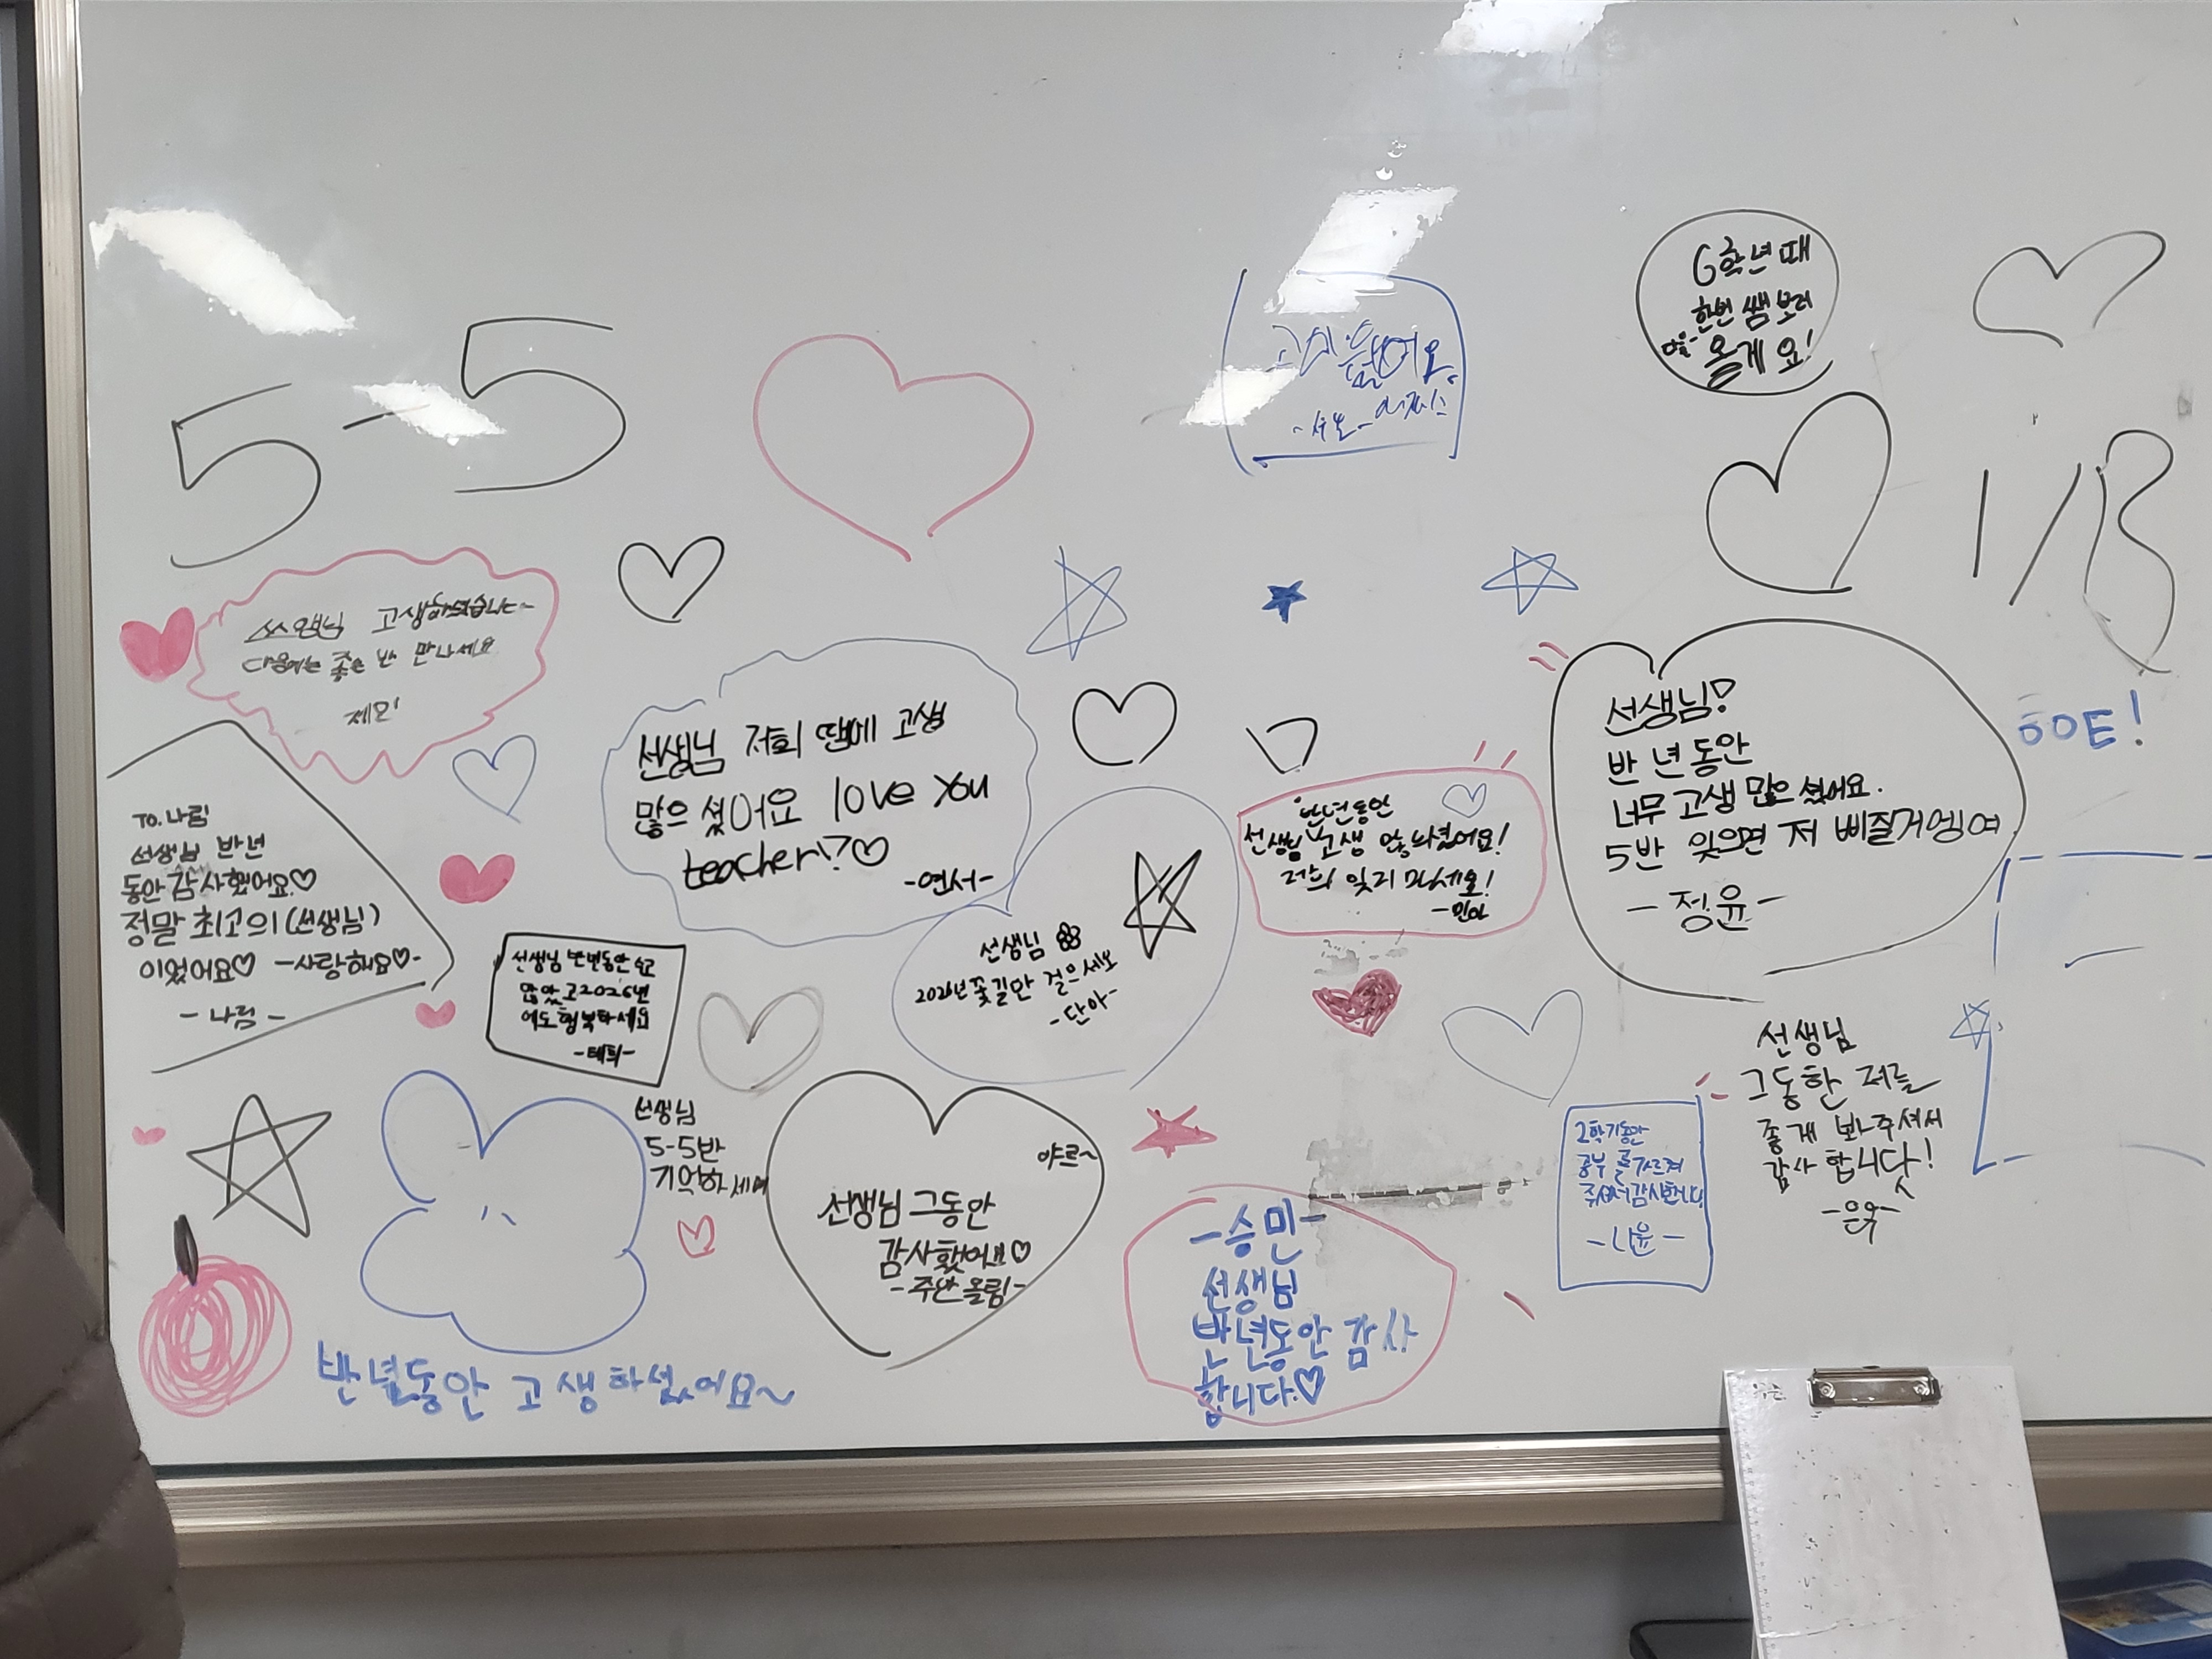 5-5
6학년 때
한번 쌤 보러
올게요!
고생하셨습니다~
다음에는 좋은 반 만나세요
선생님 저희 땜에 고생
많으셨어요 love you
teacher!?♡
-연서-
반년동안
선생님 고생 많으셨어요!
저희 잊지 마세요!
-민아
선생님!
반년동안
너무 고생 많으셨어요.
5반 잊으면 저 삐질거엥여
-정윤-
TO.나림
선생님 반년
동안 감사했어요♡
정말 최고의(선생님)
이었어요♡ -사랑해요♡-
-나림-
선생님 반년동안 수고
많았고 2026년
에도 행복하세요
-태희-
선생님
2026년 꽃길만 걸으세요
-단아-
선생님
5-5반
기억하세여
야르~
선생님 그동안
감사했어요♡
반년동안 고생하셨어요~
-승민-
선생님
반년동안 감사
합니다.♡
2학기동안
공부를 가르쳐
주셔서 감사합니다
-나윤-
선생님
그동한 저를
좋게 봐주셔서
감사합니닷!